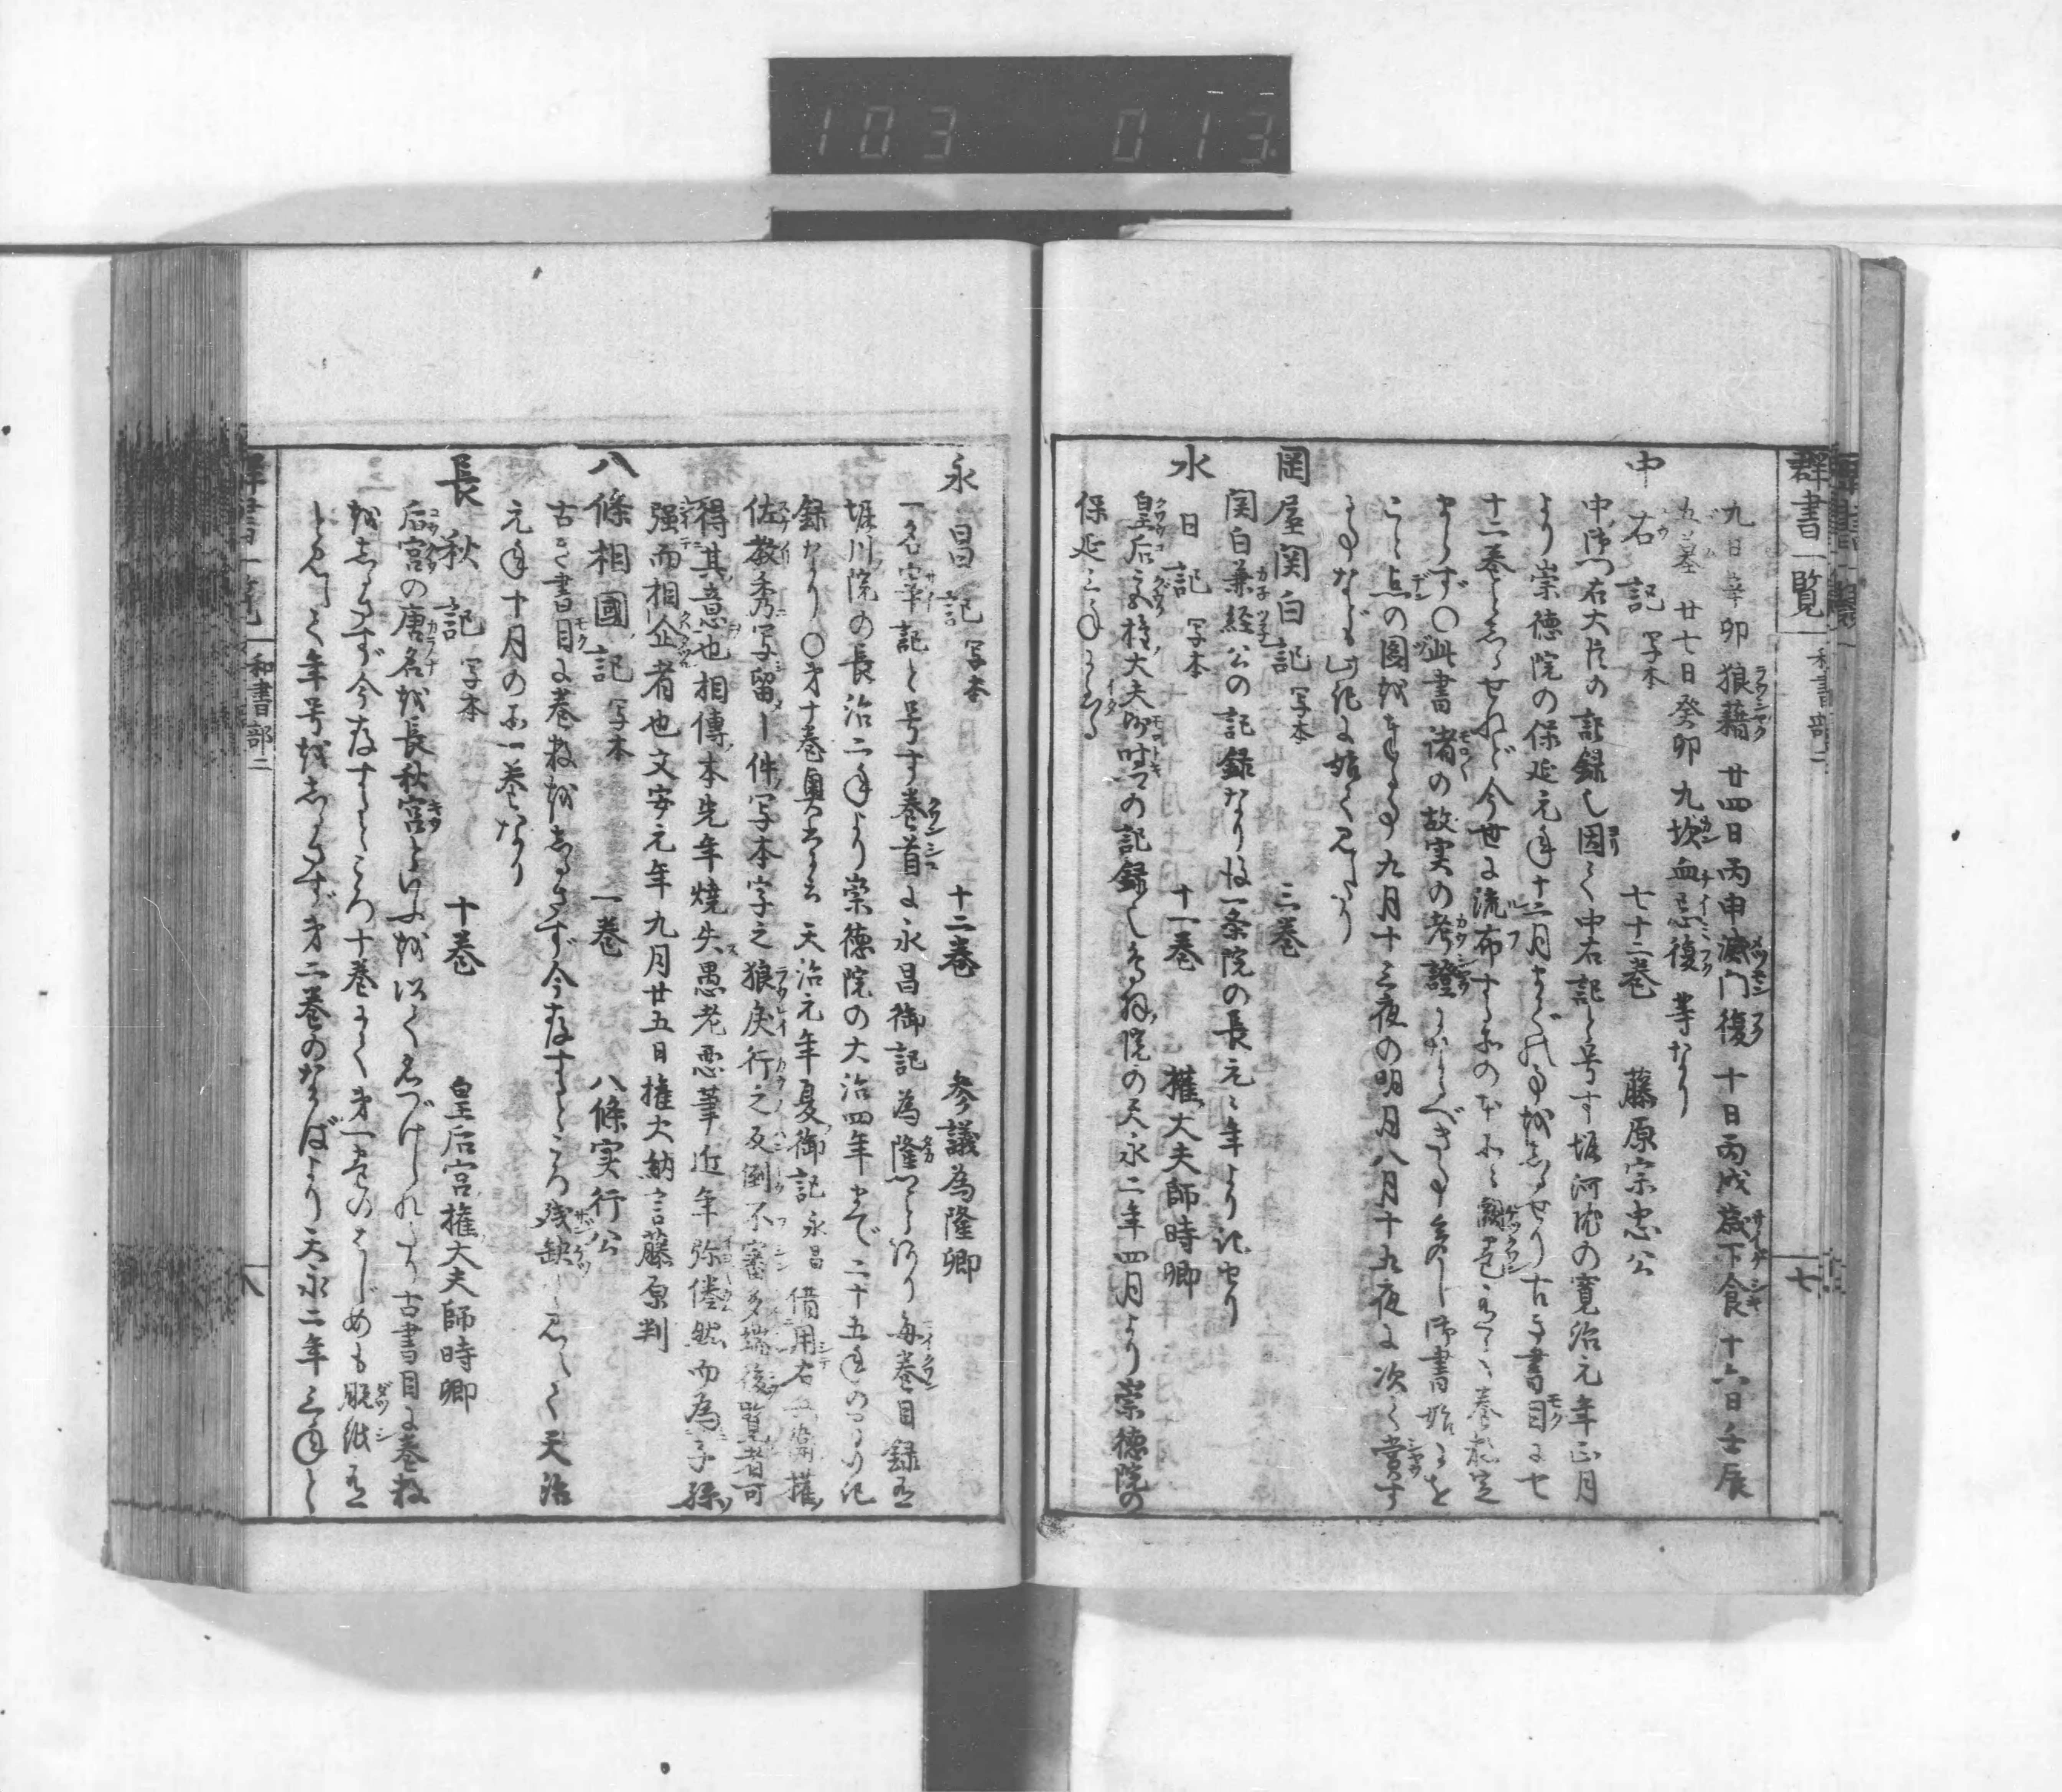 103 013
群書一覧 和書部二 七
九日辛卯狼藉廿四日丙申滅門復十日丙戌歳下食十六日壬辰
五墓廿七日癸卯九坎血忌復等なり
中右記 写本 七十二巻 藤原宗忠公
中御門右大臣の記録也因て中右記と号す堀河院の寛治元年正月
より崇徳院の保延元年十二月までの事をしるせり古き書目に七
十二巻としるせれど今世に流布する所の本 巻数定
まらず〇此書諸の故実の考證になるべき事多し御書始を
こと点の図をのする事九月十三夜の明月八月十五夜に次て賞す
る事なども此記に始て見えたり
岡屋関白記 写本 三巻
関白兼経公の記録なり後一条院の長元々年より記せり
水日記 写本 十一巻 権大夫師時卿
皇后宮権大夫師時卿の記録也鳥羽院の天永二年四月より崇徳院の
保延三年にいたる
永昌記 写本 十二巻 参議為隆卿
一名宰記と号す巻首に永昌御記為隆とあり毎巻目録有
堀川院の長治二年より崇徳院の大治四年まで二十五年のあひだの記
録なり〇第十巻奥書に云天治元年夏御記永昌借用右 権
佐教秀写留之件写本字之狼戻行之反倒不審多端後覧者可
得其意也相傳本先年焼失愚老悪筆近年弥倦然而為子孫
强而相企者也文安元年九月廿五日権大納言藤原判
八條相國記 写本 一巻 八條実行公
古き書目に巻数をしるさず今存するところ残缺と見えて天治
元年十月の所一巻なり
長秋記 写本 十巻 皇后宮権大夫師時卿
后宮の唐名を長秋宮といふを以て名づけられたり古書目に巻数
をしるさず今存するところ十巻にて第一巻のはじめも脱紙有
と見えて年号をしるさず第二巻のなかばより天永二年三年と
和書部二 八